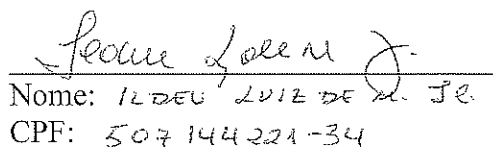 Nome: ILDEU LUIZ DE M. JR.
CPF: 507144221-34